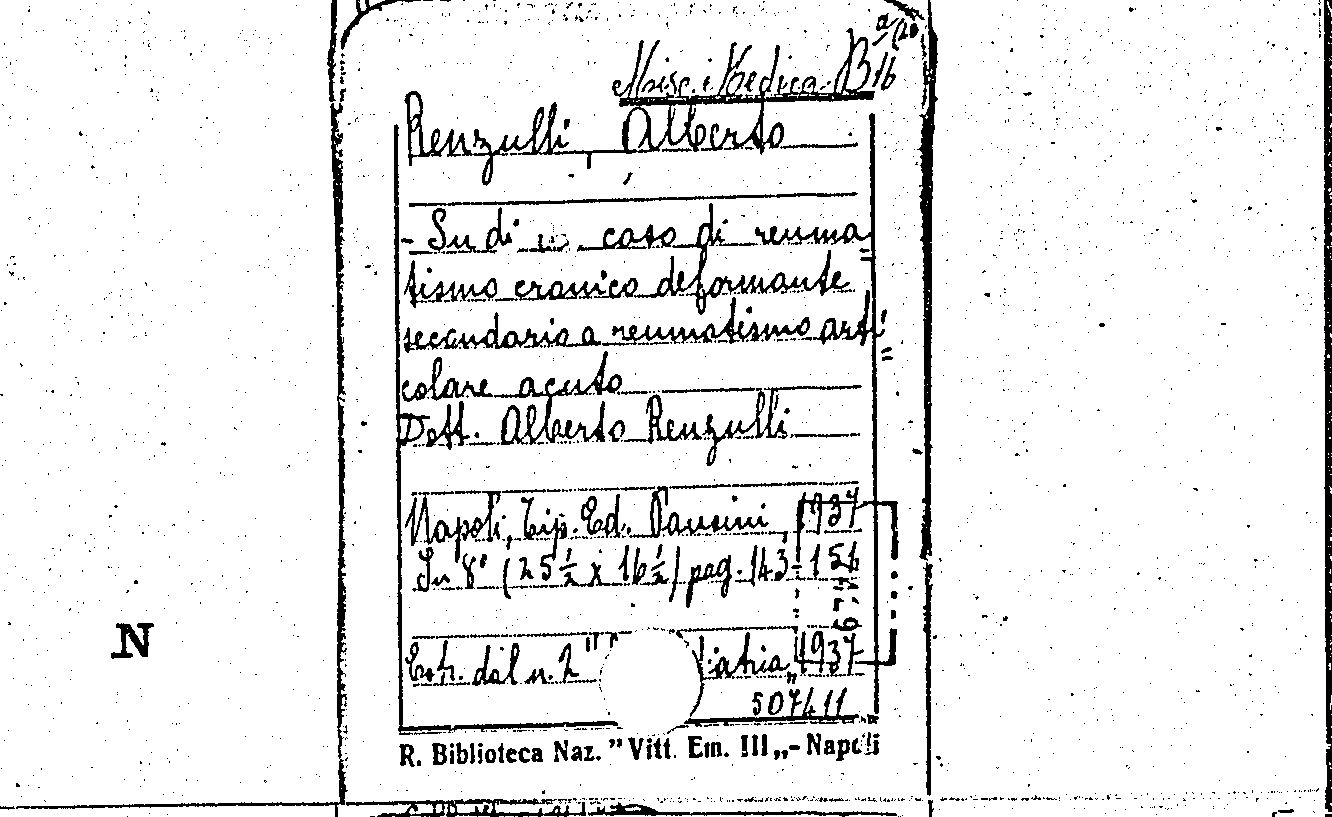 Misc. Medica B 16
a/(20
Renzulli, Alberto
- Su di un caso di reuma=
tismo cronico deformante
secondario a reumatismo arti=
colare acuto
Dott. Alberto Renzulli
Napoli, Tip. Ed. Pansini, 1937
In 8° (25 1/2 x 16 1/2) pag. 143-156
Estr. dal n. 2 " iatria„ 1937
507411
R. Biblioteca Naz. "Vitt. Em. III„ - Napoli
N